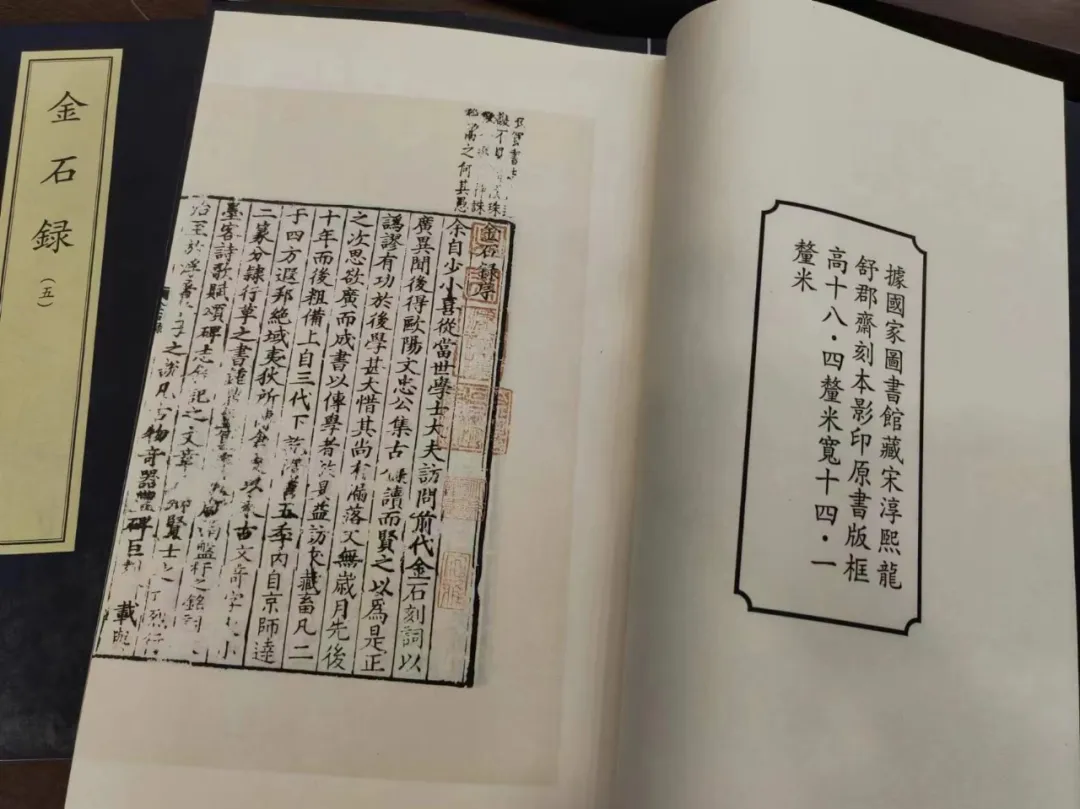 據國家圖書館藏宋淳熙龍
舒郡齋刻本影印原書版框
高十八·四釐米寬十四·一
釐米
之何其愚
金石録序
余自少小喜從當世學士大夫訪問前代金石刻詞以
廣異聞後得歐陽文忠公集古 讀而賢之以為是正
譌謬有功於後學甚大惜其尚有漏落又無歲月先後
之次思欲廣而成書以傳學者於是益訪求藏畜凡二
十年而後粗備上自三代下 五季內自京師達
于四方遐邦絶域夷狄所 以 古文奇字 小
二篆分隸行草之書鐘 盤杅之銘
臺客詩歌賦頌碑志 記之文章 賢士 烈行
至於浮 之 凡古物奇器 碑巨 載
金石録
（五）